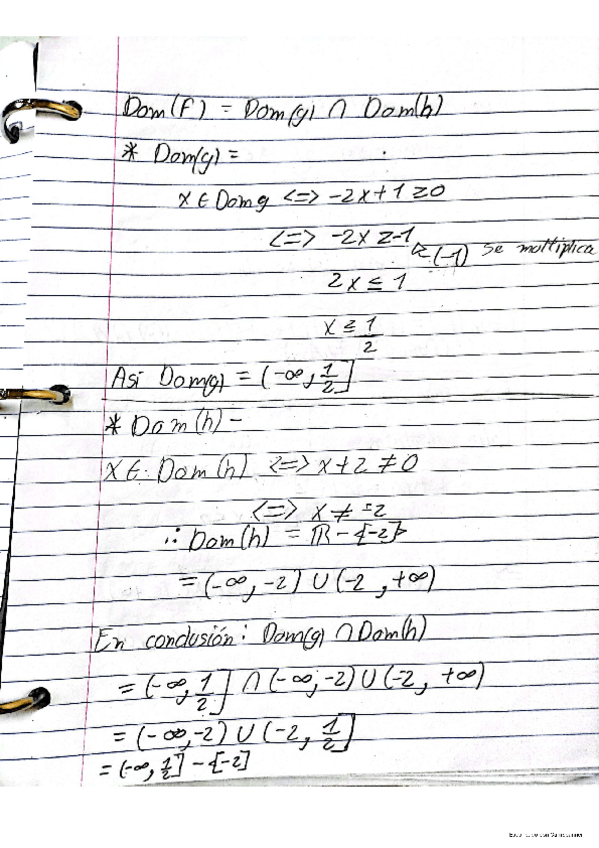 Dom(f) = Dom(g) ∩ Dom(h)
* Dom(g) =
x ∈ Dom g <=> -2x+1 ≥ 0
<=> -2x ≥ -1 (-1) se multiplica
2x ≤ 1
x ≤ 1/2
Asi Dom(g) = (-∞, 1/2]
* Dom(h) -
x ∈ Dom(h) <=> x+2 ≠ 0
<=> x ≠ -2
∴ Dom(h) = ℝ - {-2}
= (-∞, -2) ∪ (-2, +∞)
En conclusión: Dom(g) ∩ Dom(h)
= (-∞, 1/2] ∩ (-∞, -2) ∪ (-2, +∞)
= (-∞, -2) ∪ (-2, 1/2]
= (-∞, 1/2] - {-2}